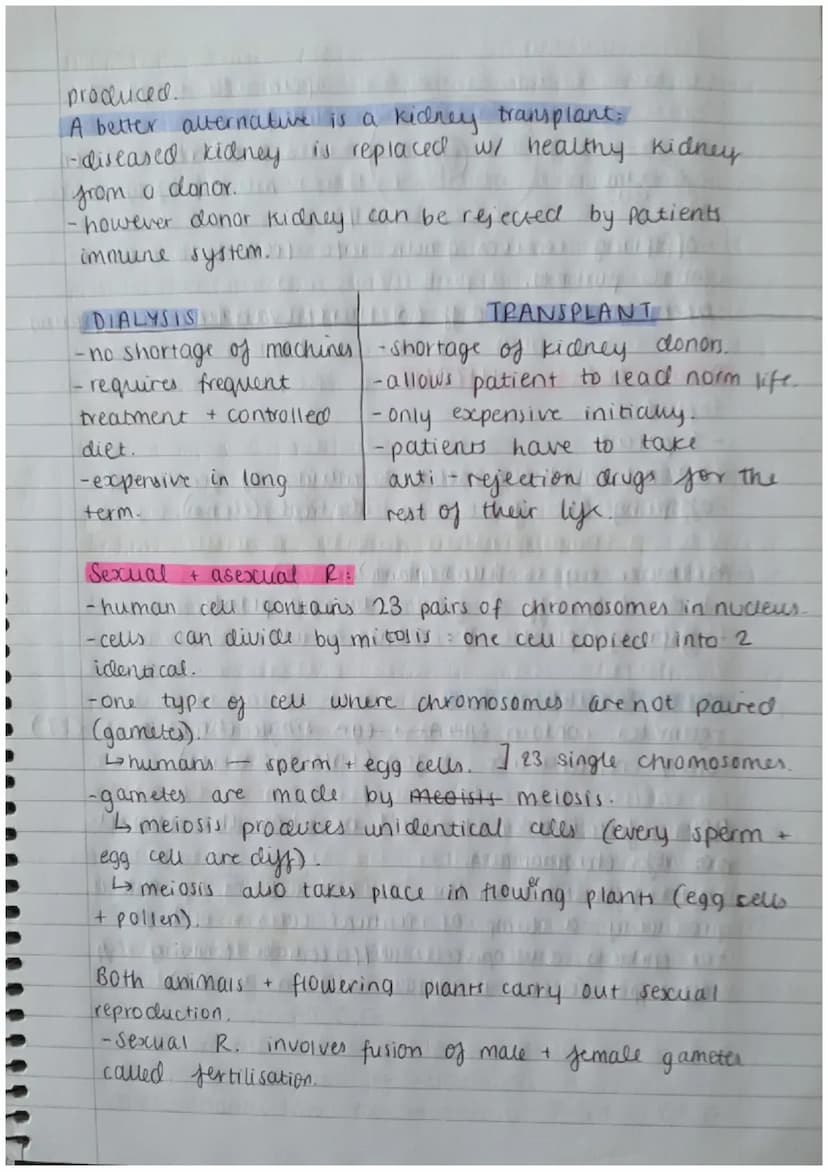 produced.
A better alternative is a kidney transplant:
- diseased kidney is replaced w/ healthy kidney
from a donor.
- however donor kidney can be rejected by patients
immune system.
DIALYSIS
- no shortage of machines
- requires frequent
treatment + controlled
diet.
- expensive in long
term.
TRANSPLANT
- shortage of kidney donors.
- allows patient to lead norm life.
- only expensive initially.
- patients have to take
anti-rejection drugs for the
rest of their life.
Sexual + asexual R:
- human cell contains 23 pairs of chromosomes in nucleus.
- cells can divide by mitosis : one cell copied into 2
identical.
- one type of cell where chromosomes are not paired
(gametes).
↳ humans — sperm + egg cells. ] 23 single chromosomes.
- gametes are made by meiosis.
↳ meiosis produces unidentical cells (every sperm +
egg cell are diff).
↳ meiosis also takes place in flowering plants (egg cells
+ pollen).
Both animals + flowering plants carry out sexual
reproduction.
- Sexual R. involves fusion of male + female gametes
called fertilisation.